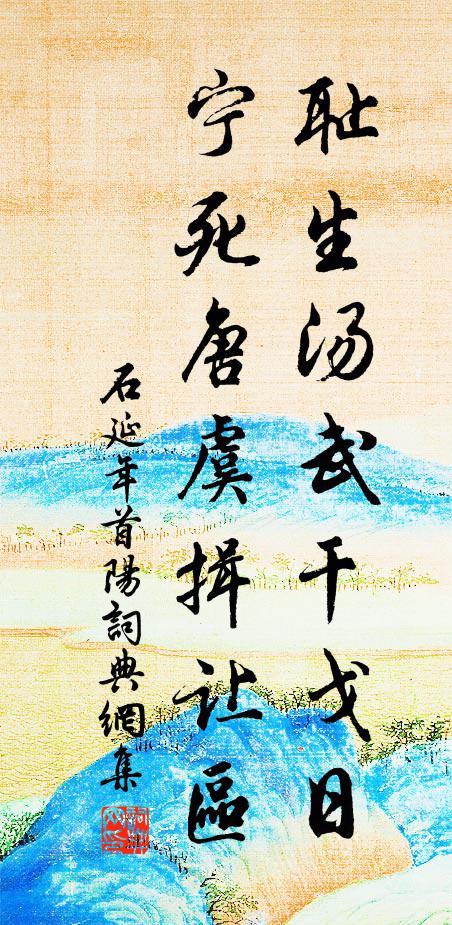 耻生汤武干戈日
宁死唐虞揖让區
石延年首陽詞典網集